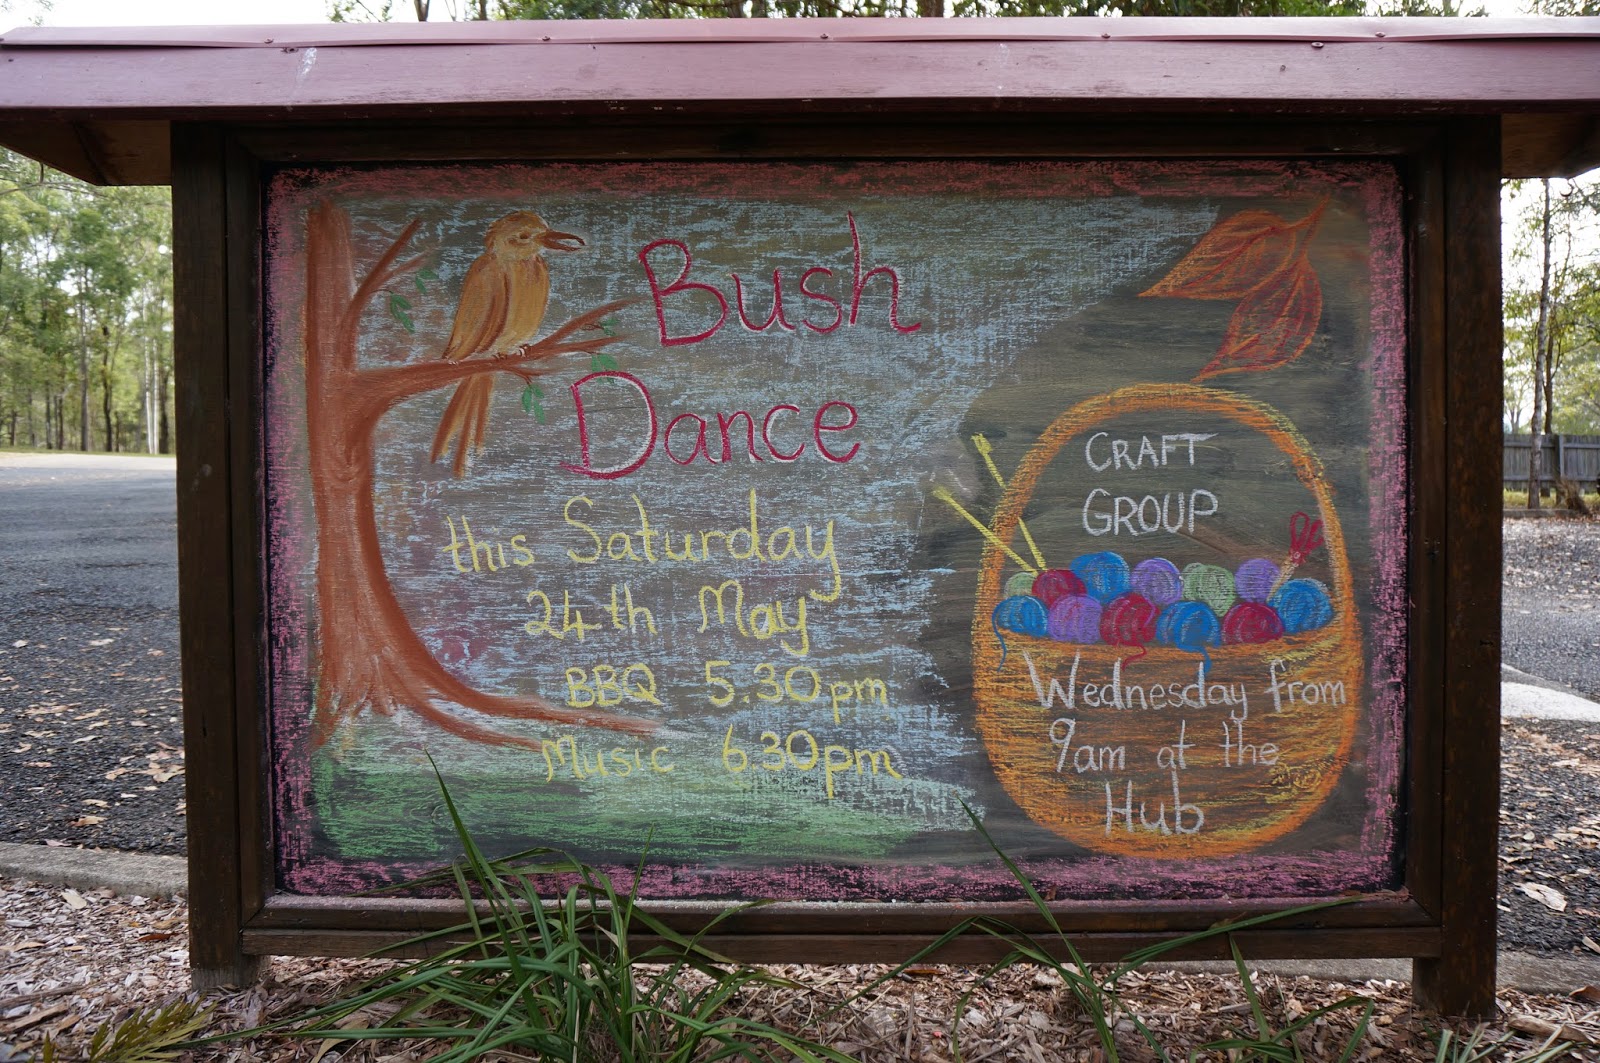 Bush
Dance
this Saturday
24th May
BBQ 5.30pm
Music 6.30pm
CRAFT
GROUP
Wednesday from
9am at the
Hub